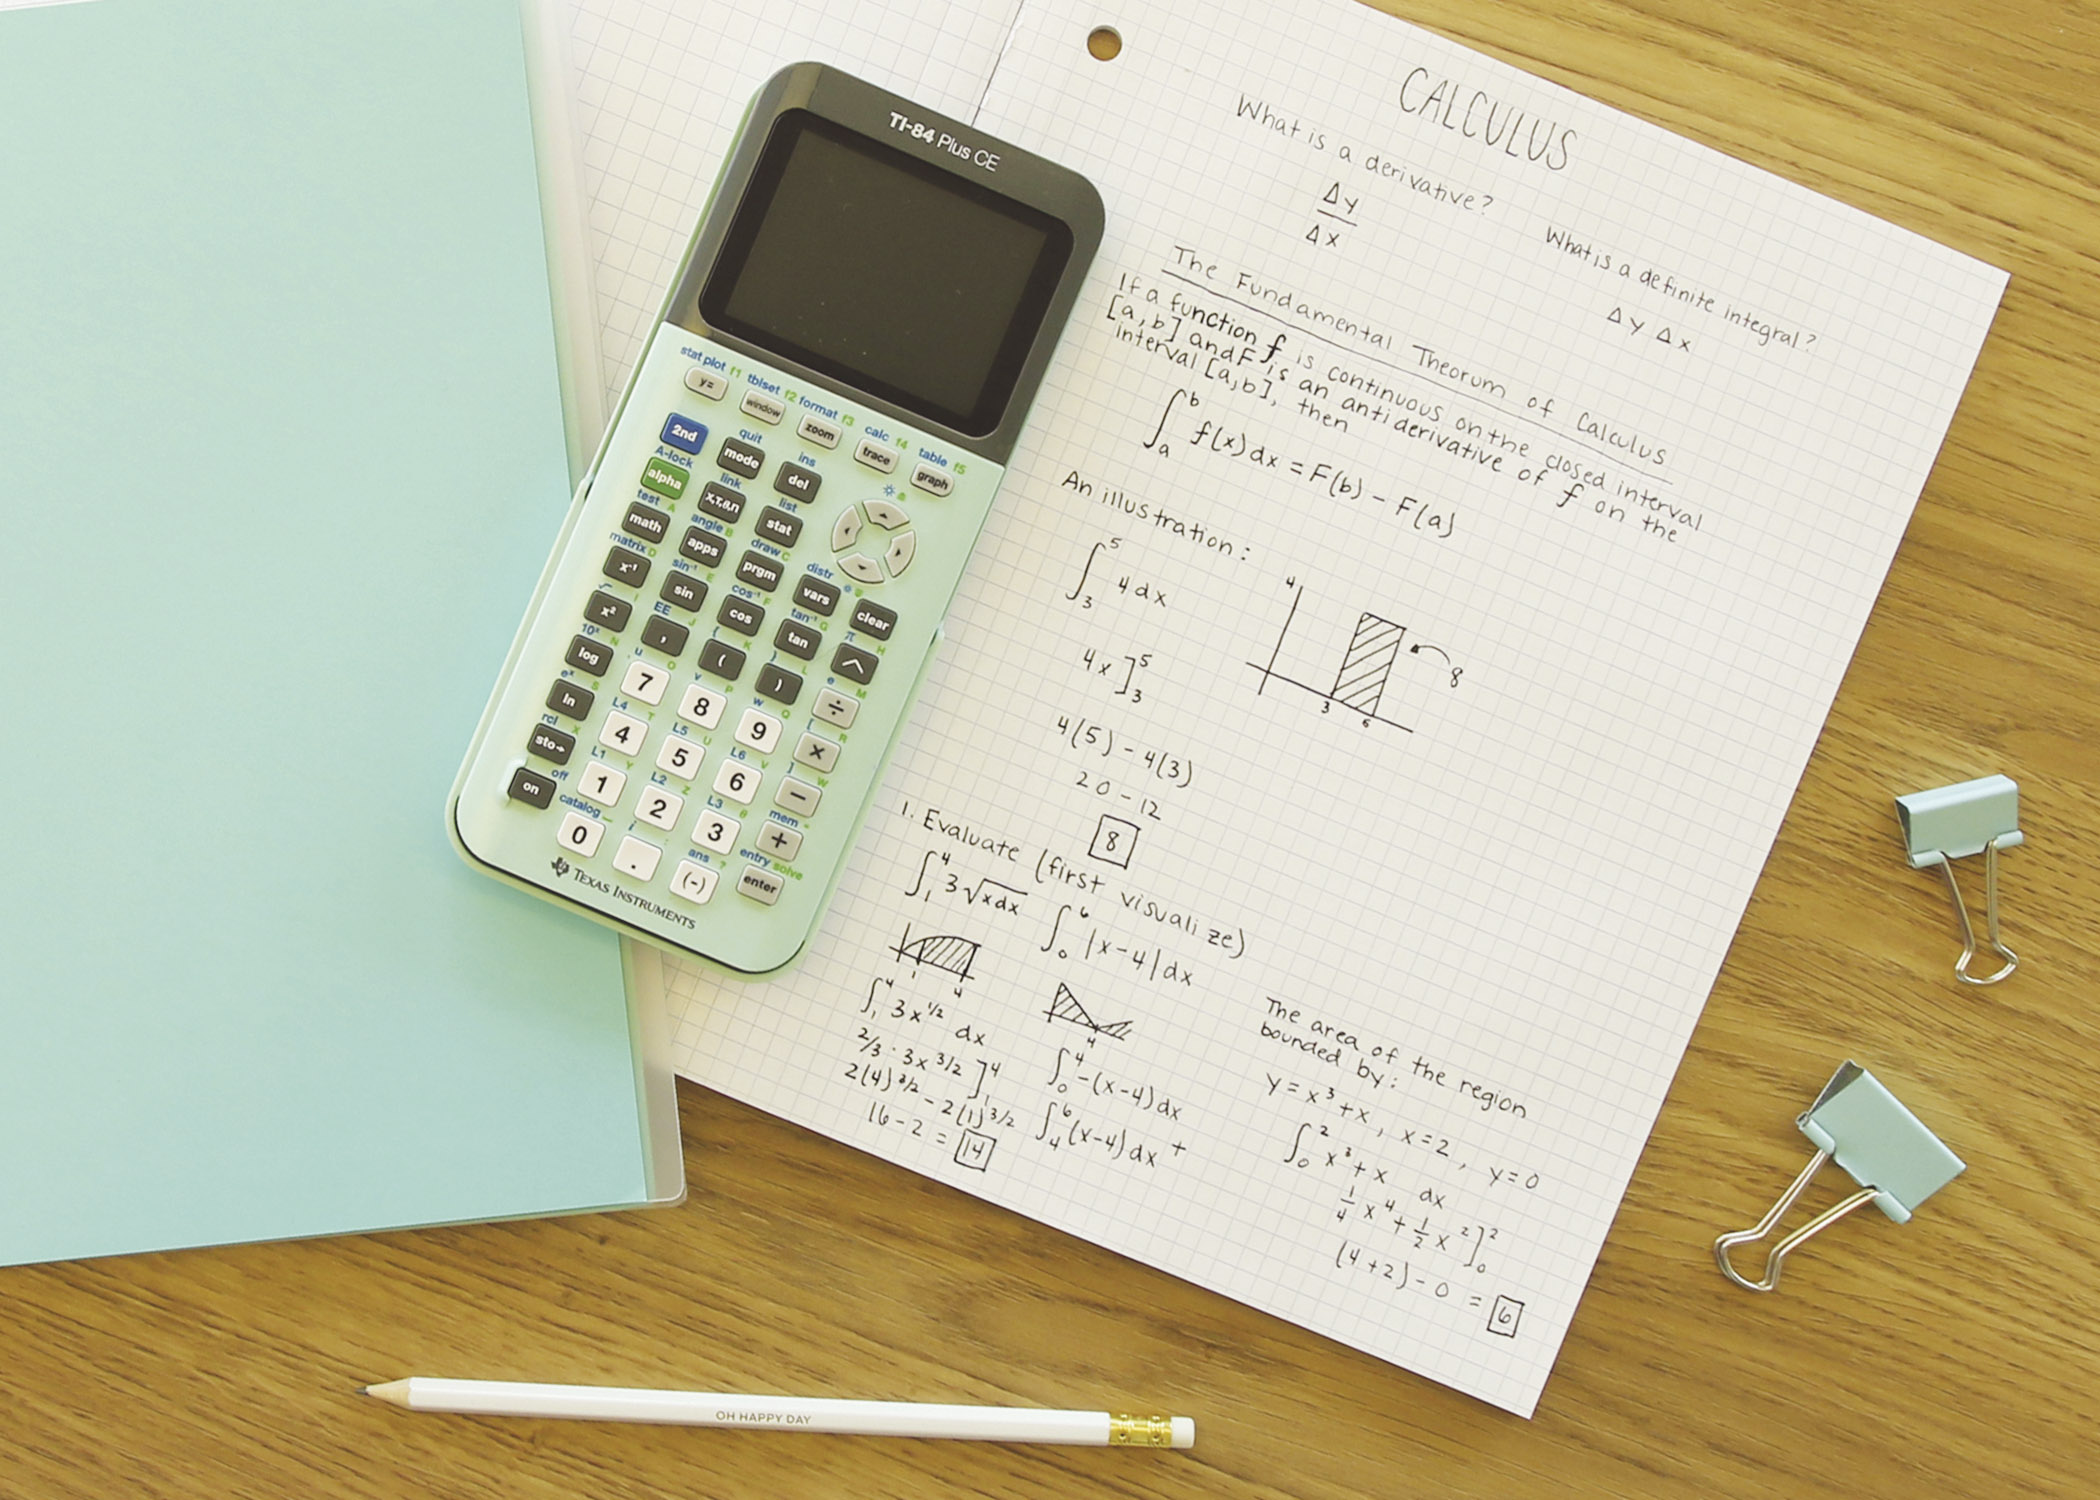 TI-84 Plus CE
stat plot f1 tblset f2 format f3 calc f4 table f5
y= window zoom trace graph
2nd
quit
mode
ins
del
A-lock
alpha
link
X,T,θ,n
list
stat
test A
math
angle B
apps
draw C
prgm
distr
vars
clear
matrix D
x⁻¹
sin⁻¹ E
sin
cos⁻¹ F
cos
tan⁻¹ G
tan
π H
^
√ I
x²
EE J
,
{ K
(
} L
)
e M
÷
10ˣ N
log
u O
7
v P
8
w Q
9
[ R
×
eˣ S
ln
L4 T
4
L5 U
5
L6 V
6
] W
−
rcl X
sto→
L1 Y
1
L2 Z
2
L3 θ
3
mem "
+
off
on
catalog _
0
i :
.
ans ?
(-)
entry solve
enter
TEXAS INSTRUMENTS
CALCULUS
What is a derivative?
Δy
Δx
What is a definite integral?
Δy Δx
The Fundamental Theorum of Calculus
If a function f is continuous on the closed interval
[a,b] and F is an antiderivative of f on the
interval [a,b], then
∫ₐᵇ f(x)dx = F(b) - F(a)
An illustration:
∫₃⁵ 4dx
4x]₃⁵
4(5) - 4(3)
20 - 12
8
4
8
3 6
1. Evaluate (first visualize)
∫₁⁴ 3√xdx
1 4
∫₁⁴ 3x^1/2 dx
2/3 · 3x^3/2]₁⁴
2(4)^3/2 - 2(1)^3/2
16 - 2 = 14
∫₀⁶ |x-4|dx
4
∫₀⁴ -(x-4)dx
∫₄⁶ (x-4)dx +
The area of the region
bounded by:
y = x³ + x, x = 2, y = 0
∫₀² x³ + x dx
1/4 x⁴ + 1/2 x²]₀²
(4+2) - 0 = 6
OH HAPPY DAY